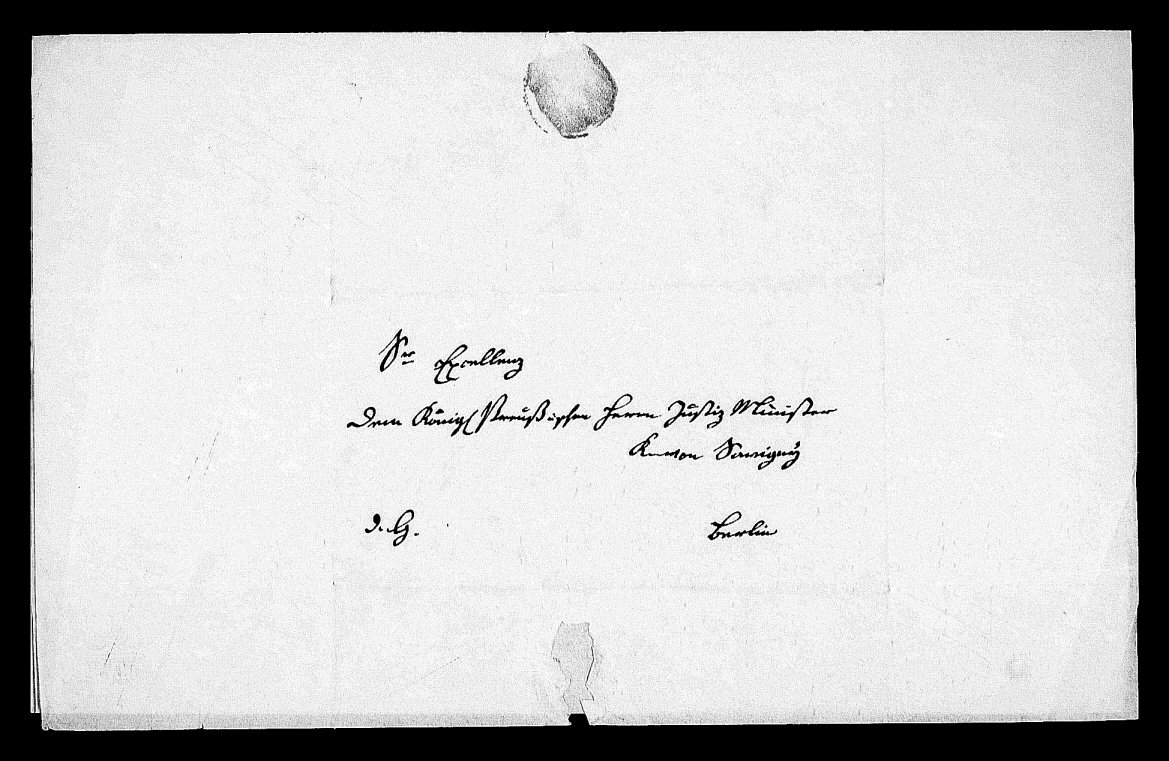 Sr Excellenz
Dem Königl Preußischen Herrn Justiz Minister
von Savigny
d. G.
Berlin